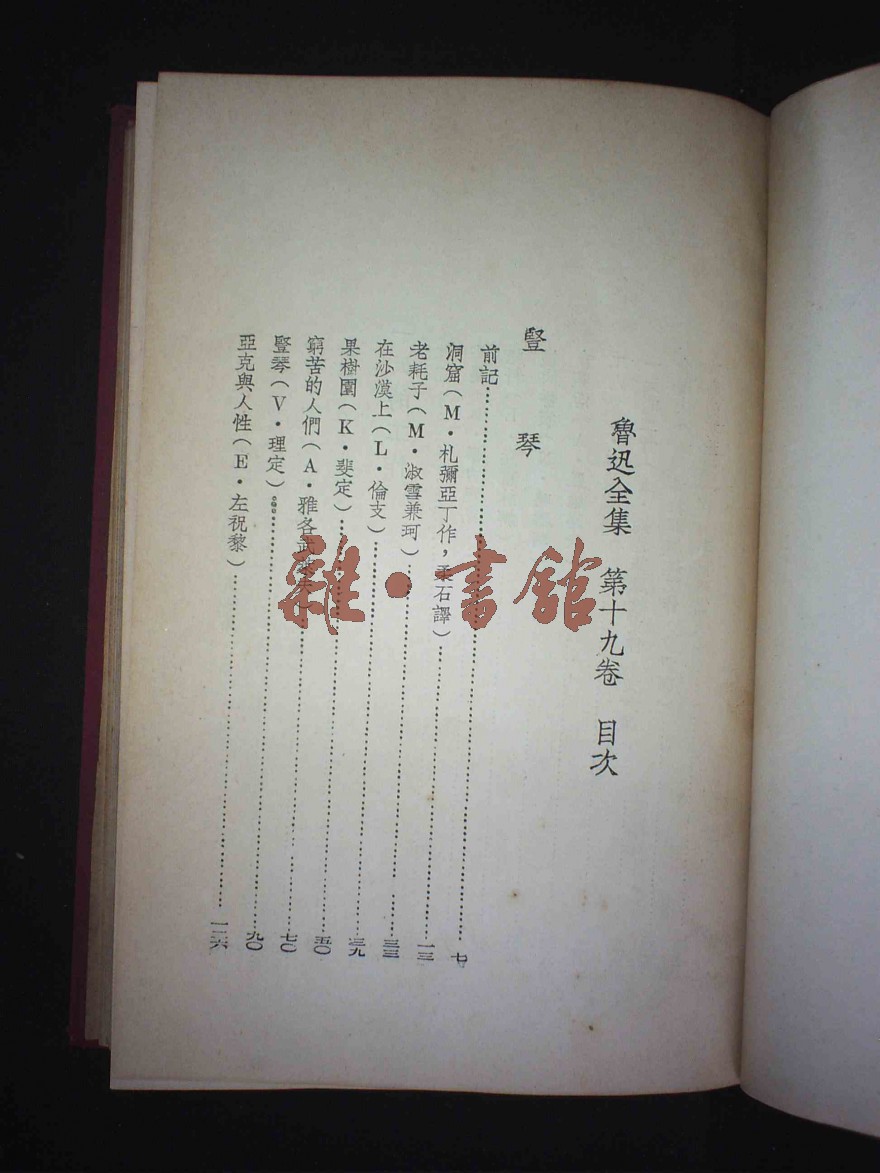 魯迅全集 第十九卷 目次
豎琴
前記……七
洞窟（M·札彌亞丁作，柔石譯）……一三
老耗子（M·淑雪兼珂）……三三
在沙漠上（L·倫支）……三九
果樹園（K·斐定）……五〇
窮苦的人們（A·雅各武……七〇
豎琴（V·理定）……九〇
亞克與人性（E·左祝黎）……一二六
雜·書館